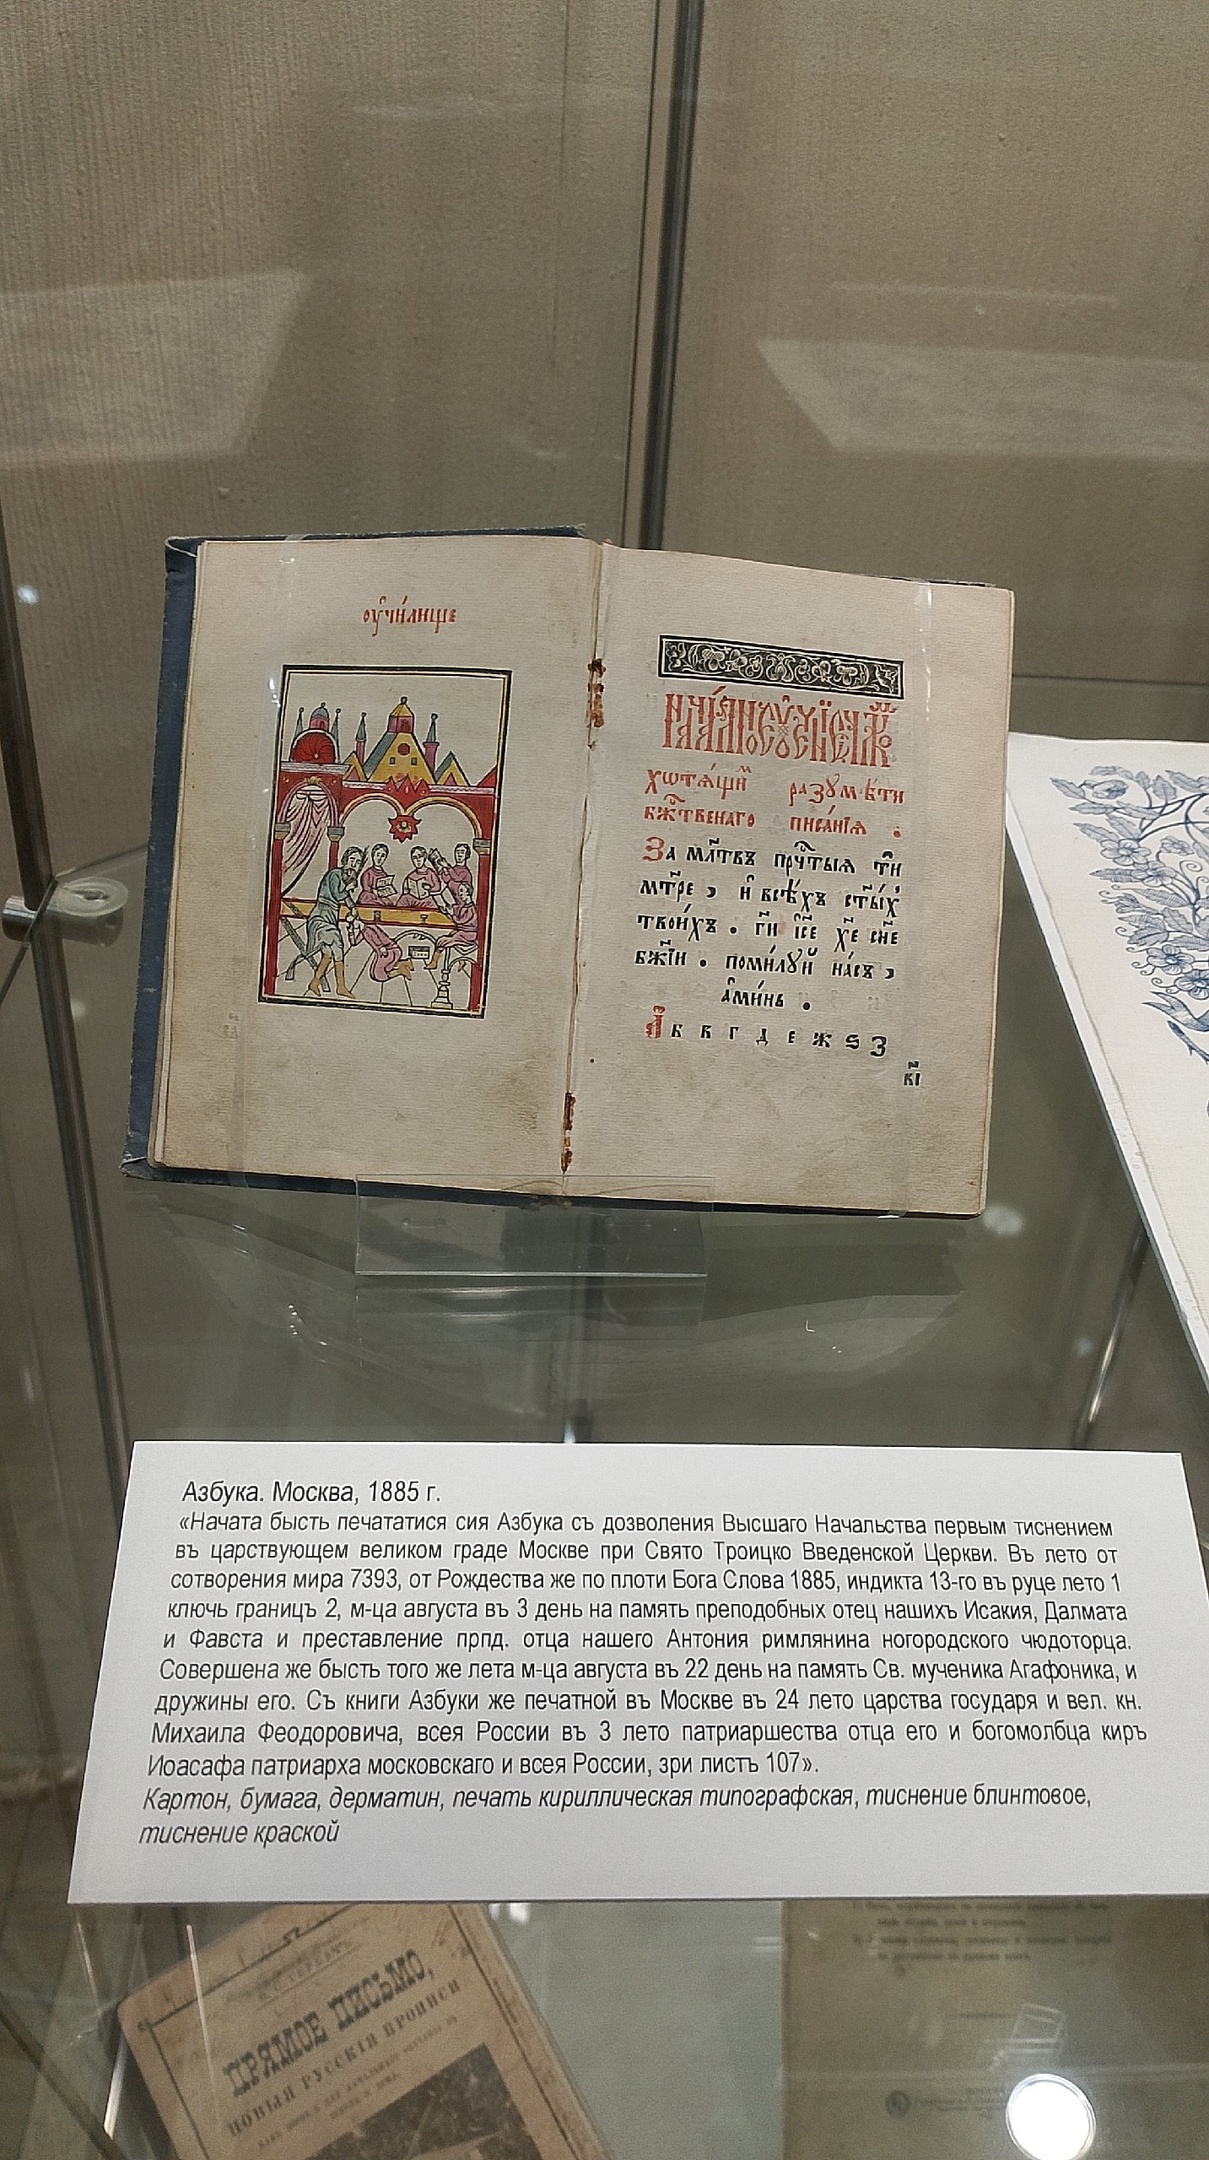 оу҆чи́лище
Нача́льное оу҆че́нїе человѣ́кѡмъ
хотѧ́щимъ разꙋмѣ́ти
бж҃твенаго писа́нїѧ .
За мл҃твъ пречⷭ҇тыѧ тѝ
мт҃ре , и҆ всѣ́хъ ст҃ы́хъ
твои́хъ . гⷭ҇и і҆с҃е хрⷭ҇те сн҃е
бж҃їи . поми́лꙋй на́съ ,
а҆ми́нь .
А б в г д е ж ѕ з
Азбука. Москва, 1885 г.
«Начата бысть печататися сия Азбука съ дозволения Высшаго Начальства первым тиснением
въ царствующем великом граде Москве при Свято Троицко Введенской Церкви. Въ лето от
сотворения мира 7393, от Рождества же по плоти Бога Слова 1885, индикта 13-го въ руце лето 1
ключь границъ 2, м-ца августа въ 3 день на память преподобных отец нашихъ Исакия, Далмата
и Фавста и преставление прпд. отца нашего Антония римлянина ногородского чюдоторца.
Совершена же бысть того же лета м-ца августа въ 22 день на память Св. мученика Агафоника, и
дружины его. Съ книги Азбуки же печатной въ Москве въ 24 лето царства государя и вел. кн.
Михаила Феодоровича, всея России въ 3 лето патриаршества отца его и богомолбца киръ
Иоасафа патриарха московскаго и всея России, зри листъ 107».
Картон, бумага, дерматин, печать кириллическая типографская, тиснение блинтовое,
тиснение краской
ПРЯМОЕ ПИСЬМО,
НОВЫЯ РУССКІЯ ПРОПИСИ